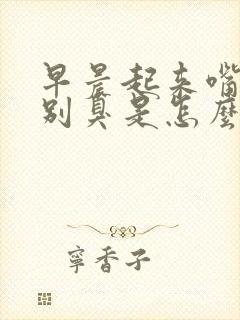 早晨起来嘴
别臭是怎麼
寧香子